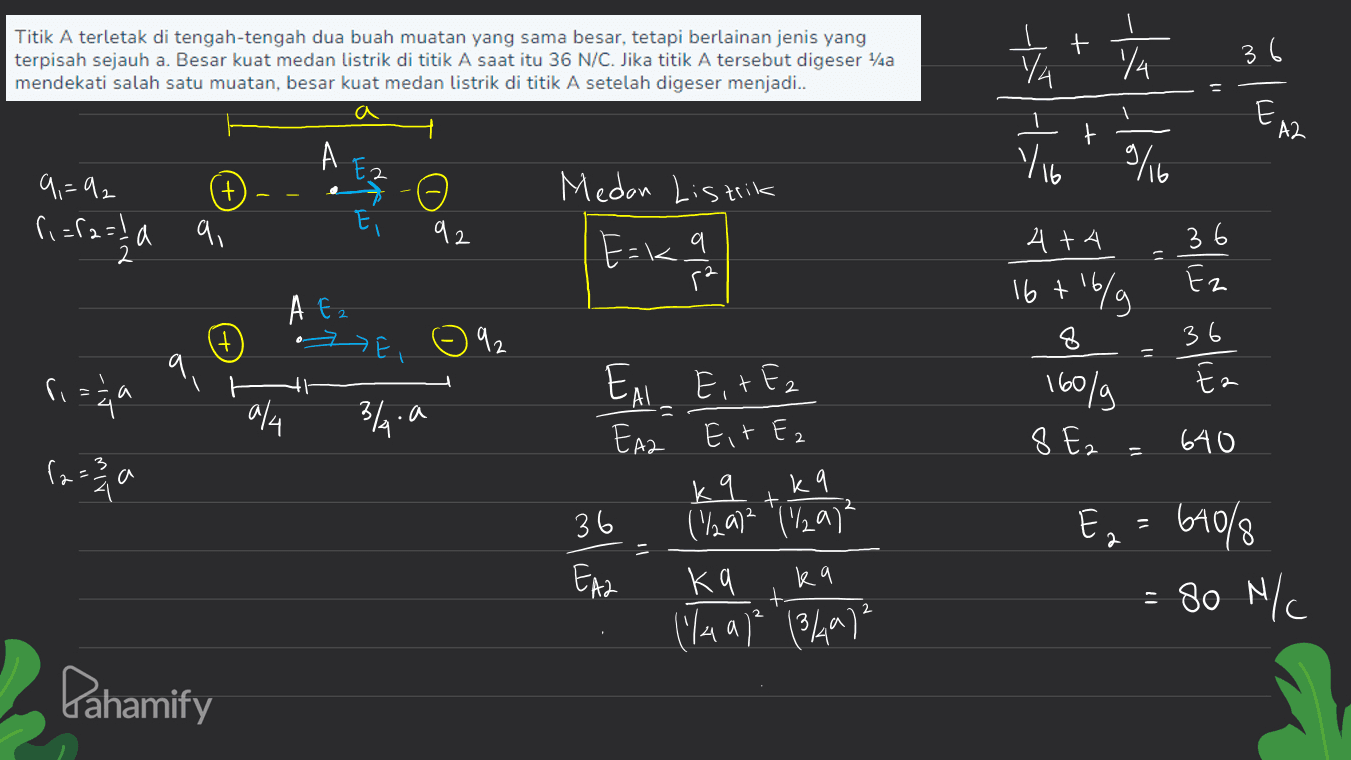 Titik A terletak di tengah-tengah dua buah muatan yang sama besar, tetapi berlainan jenis yang
terpisah sejauh a. Besar kuat medan listrik di titik A saat itu 36 N/C. Jika titik A tersebut digeser ¼a
mendekati salah satu muatan, besar kuat medan listrik di titik A setelah digeser menjadi..
a
A E₂
q₁=q₂ + - - - -
r₁=r₂=1/2 a q₁ E₁ q₂
A E₂
q₁ + E₁ - q₂
r₁ = 1/4 a
a/4 3/4.a
r₂ = 3/4 a
Medan Listrik
E = k q/r²
EA1/EA2 = (E₁ + E₂)/(E₁ + E₂)
36/EA2 = (kq/(1/2 a)² + kq/(1/2 a)²)/(kq/(1/4 a)² + kq/(3/4 a)²)
(1/(1/4) + 1/(1/4))/(1/(1/16) + 1/(9/16)) = 36/EA2
(4 + 4)/(16 + 16/9) = 36/E₂
8/(160/9) = 36/E₂
8 E₂ = 640
E₂ = 640/8
= 80 N/C
Pahamify